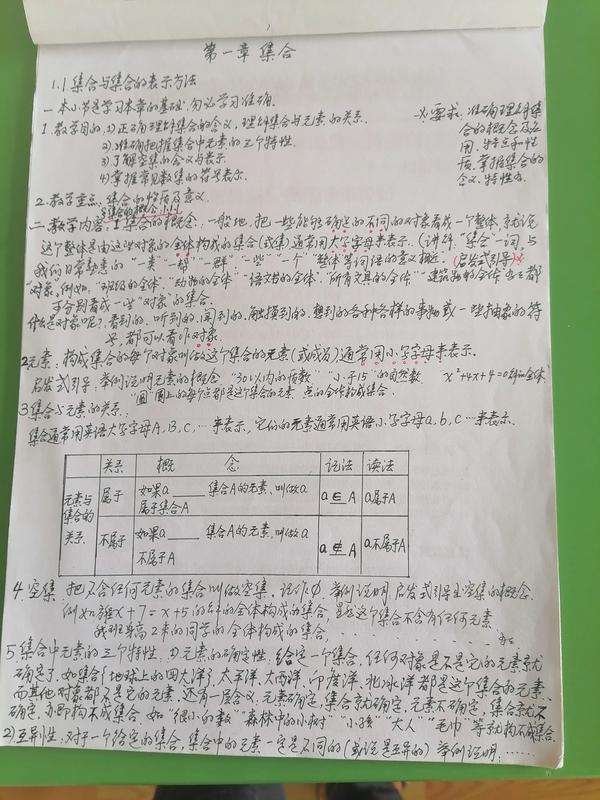 第一章 集合
1.1 集合与集合的表示方法
一 本小节是学习本章的基础. 勿必学习准确.
1. 教学目的. 1)正确理解集合的含义, 理解集合与元素的关系.
2)准确把握集合中元素的三个特性.
3)了解空集的含义与表示
4)掌握常见数集的符号表示.
※要求. 准确理解集
合的概念及应
用. 特点和性
质. 掌握集合的
含义. 特性
2. 教学重点. 集合的性质及意义.
二. 教学内容. 1 集合的概念: 一般地, 把一些能够确定的不同的对象看成一个整体, 就说
这个整体是由这些对象的全体构成的集合(或集)通常用大字字母来表示. (讲解. "集合"一词, 与
我们日常熟悉的"一类""一帮""一群""一些""一个""整体"等词语的意义相近. (启发式引导)※
"对象, 例如. "班级的全体""动物的全体""语文书的全体""所有文具的全体""建筑物的全体"
分别看成一些"对象"的集合.
什么是对象呢?. 看到的. 听到的. 闻到的. 触摸到的. 想到的各种各样的事物或一些抽象的符
号, 都可以看作对象.
2元素: 构成集合的每个对象叫做这个集合的元素(或成员)通常用小字字母来表示.
启发式引导. 举例说明元素的概念 "30以内的质数" "小于15"的自然数 "x²+4x+4=0解的全体.
"圆"圆上的每个点都是这个集合的元素 点的全体构成集合.
3集合与元素的关系:
集合通常用英语大字字母A, B, C, … 来表示, 它们的元素通常用英语小字字母a, b, c …来表示.
关系 概 念 记法 读法
元素与集合的关系 属于 如果a____集合A的元素, 叫做a属于集合A a∈A a属于A
不属于 如果a____集合A的元素, 叫做a不属于A a∉A a不属于A
4. 空集 把不含任何元素的集合叫做空集. 记作∅. 举例说明. 启发式引导出空集的概念.
例如 x+7=x+5的解的全体构成的集合, 显然这个集合不含有任何元素
我班身高2米的同学的全体构成的集合, ……
5. 集合中元素的三个特性. 1)元素的确定性. 给定一个集合, 任何对象是不是它的元素就
确定了. 如集合{地球上的四大洋}, 太平洋. 大西洋. 印度洋. 北冰洋都是这个集合的元素.
而其他对象都不是它的元素. 还有一层含义. 元素确定, 集合就确定, 元素不确定, 集合就不
确定, 亦即构不成集合. 如"很小的数""森林中的小树""小孩""大人""毛巾"等就构不成集合.
2)互异性. 对于一个给定的集合, 集合中的元素一定是不同的(或说是互异的) 举例说明. ……